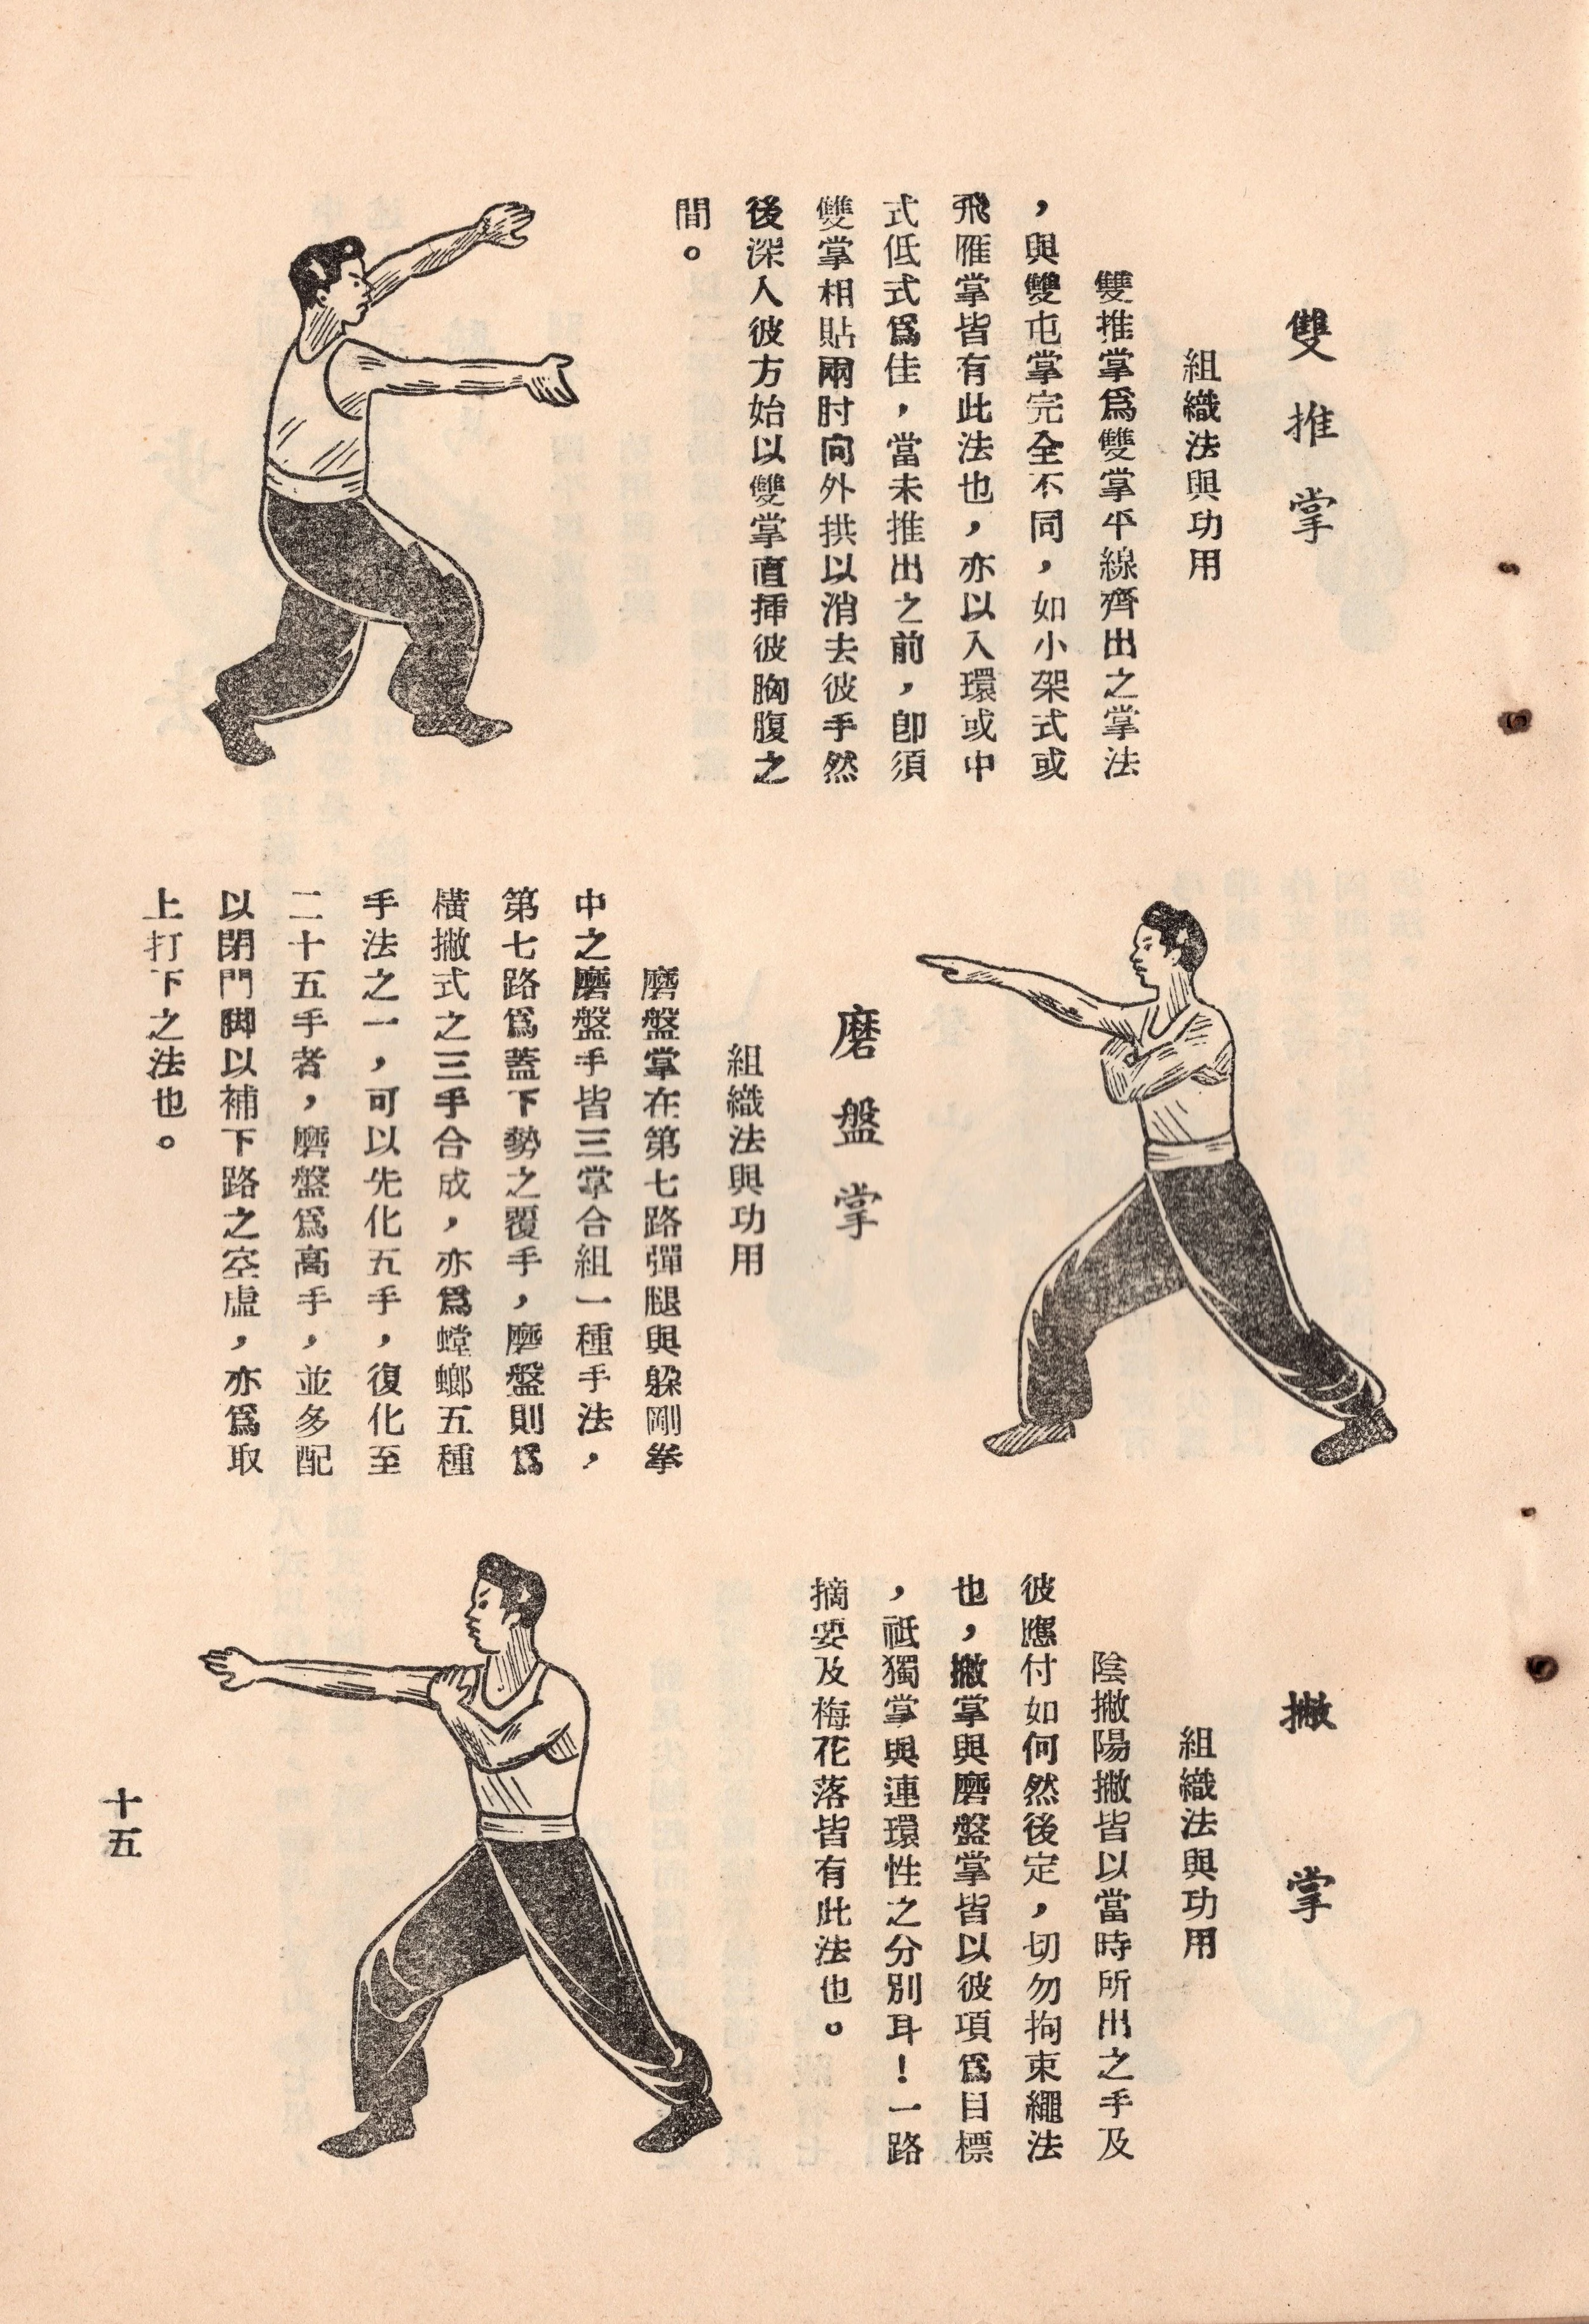 雙推掌
組織法與功用
雙推掌爲雙掌平線齊出之掌法
，與雙屯掌完全不同，如小架式或
飛雁掌皆有此法也，亦以入環或中
式低式爲佳，當未推出之前，卽須
雙掌相貼兩肘向外拱以消去彼手然
後深入彼方始以雙掌直揷彼胸腹之
間。
磨盤掌
組織法與功用
磨盤掌在第七路彈腿與躱剛拳
中之磨盤手皆三掌合組一種手法，
第七路爲蓋下勢之覆手，磨盤則爲
橫撇式之三手合成，亦爲螳螂五種
手法之一，可以先化五手，復化至
二十五手者，磨盤爲高手，並多配
以閉門脚以補下路之空虛，亦爲取
上打下之法也。
撇掌
組織法與功用
陰撇陽撇皆以當時所出之手及
彼應付如何然後定，切勿拘束繩法
也，撇掌與磨盤掌皆以彼項爲目標
，祗獨掌與連環性之分別耳！一路
摘要及梅花落皆有此法也。
十五